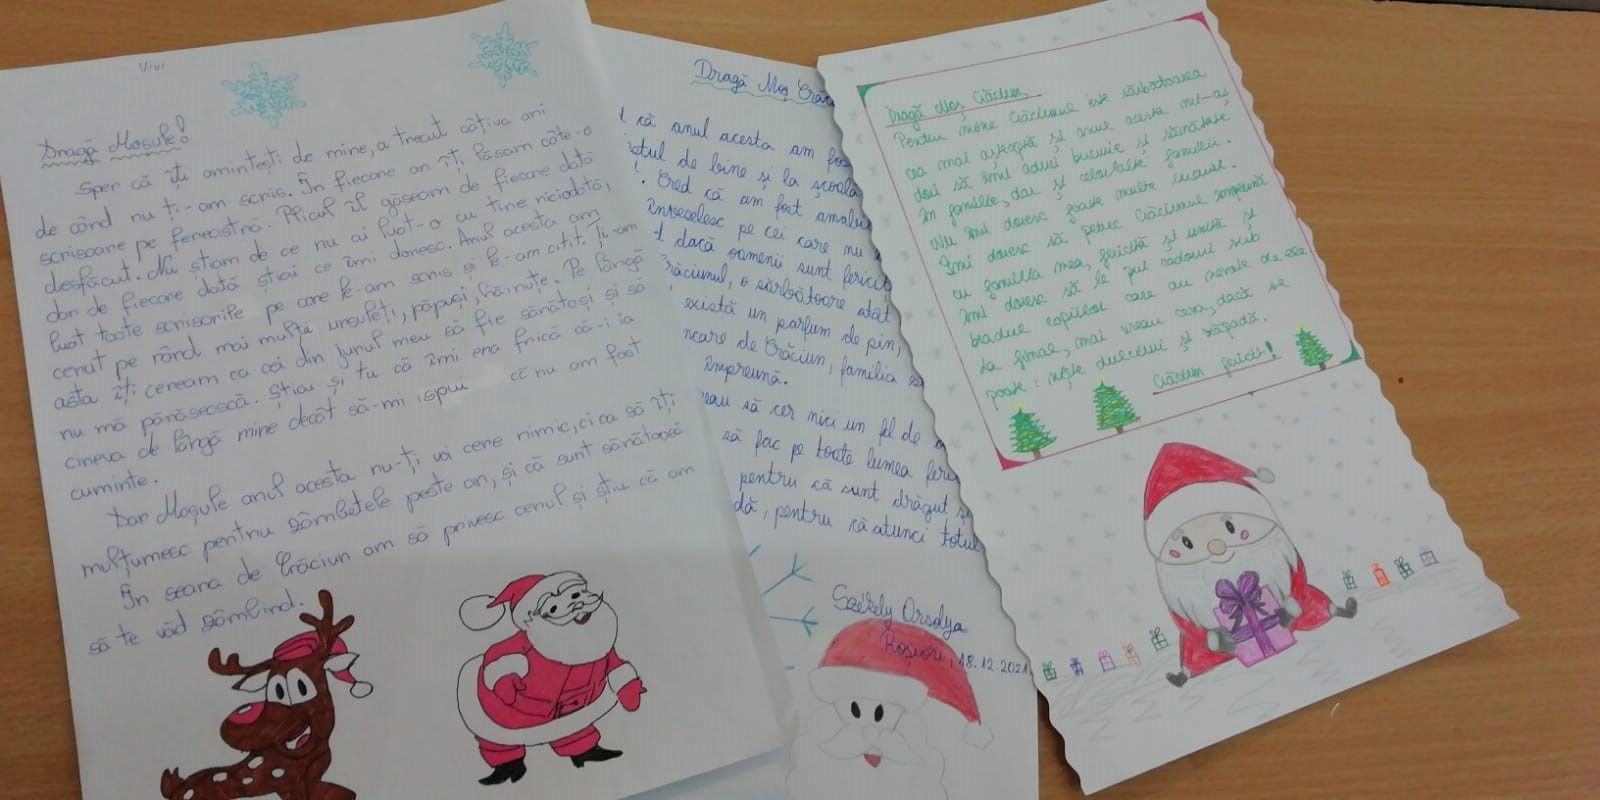 Vivi
Dragă Moșule!
Sper că îți amintești de mine, a trecut câțiva ani
de când nu ți-am scris. În fiecare an îți lăsam câte-o
scrisoare pe fereastră. Plicul îl găseam de fiecare dată
desfăcut. Nu știam de ce nu ai luat-o cu tine niciodată,
dar de fiecare dată știai ce îmi doresc. Anul acesta am
luat toate scrisorile pe care le-am scris și le-am citit. Ți-am
cerut pe rând mai multe ursuleți, păpuși, hăinuțe. Pe lângă
asta îți ceream ca cei din jurul meu să fie sănătoși și să
nu mă părăsească. Știai și tu că îmi era frică că-i ia
cineva de lângă mine decât să-mi spui că nu am fost
cuminte.
Dar Moșule anul acesta nu-ți voi cere nimic, ci ca să îți
mulțumesc pentru zâmbetele peste an, și că sunt sănătoasă
În seara de Crăciun am să privesc cerul și știu că am
să te văd zâmbind.
Dragă Moș Crăc
că anul acesta am fos
de bine și la școala
! Cred că am fost amabi
înveselesc pe cei care nu
dacă oamenii sunt ferici
răciunul, o sărbătoare atât
există un parfum de pin,
ncare de Crăciun, familia
împreună.
reau să cer nici un fel de
să fac pe toate lumea feri
pentru că sunt drăguț și
dă, pentru că atunci totul
Székely Orsolya
Roșiori, 18.12.2021
Dragă Moș Crăciun,
Pentru mine Crăciunul este sărbătoarea
cea mai așteaptă și anul acesta mi-aș
dori să îmi aduci bucurie și sănătate
în familie, dar și celorlalte familii.
Nu îmi doresc foarte multe lucruri.
Îmi doresc să petrec Crăciunul împreună
cu familia mea, fericită și unită și
îmi doresc să le pui cadouri sub
bradul copiilor care au nevoie de ele.
La final, mai vreau ceva, dacă se
poate: niște dulciuri și zăpadă.
Crăciun fericit!